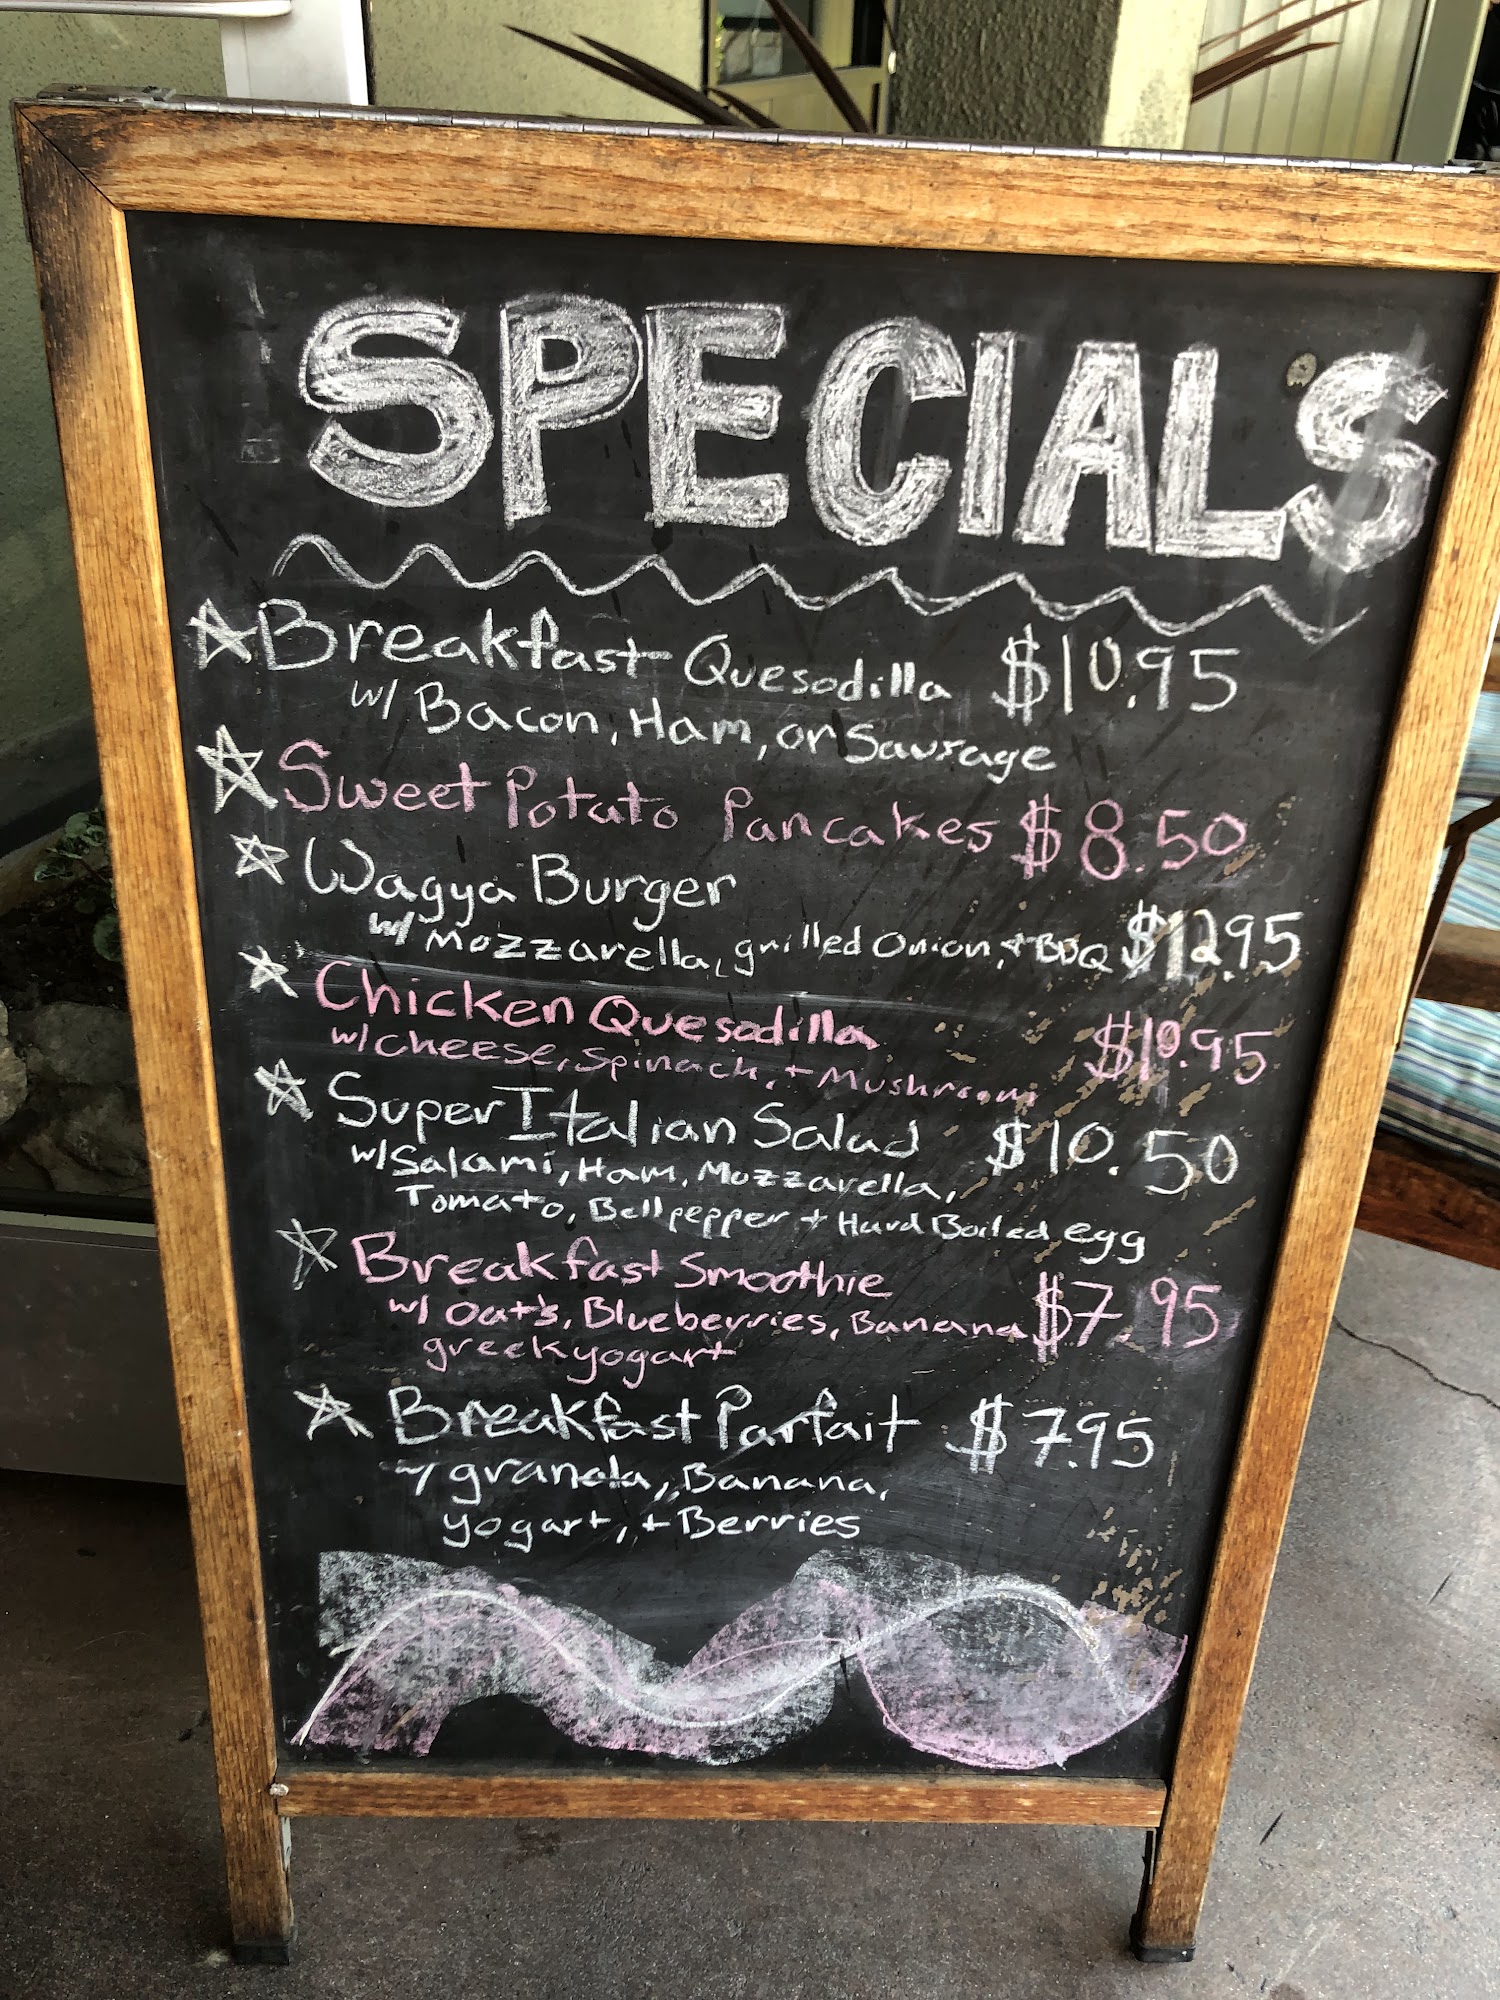 SPECIALS
Breakfast Quesadilla $10.95
w/ Bacon, Ham, or Sausage
Sweet Potato Pancakes $8.50
Wagya Burger
w/ Mozzarella, grilled Onion, + BBQ $12.95
Chicken Quesadilla $10.95
w/ cheese, Spinach, + Mushroom
Super Italian Salad $10.50
w/ Salami, Ham, Mozzarella,
Tomato, Bell pepper + Hard Boiled egg
Breakfast Smoothie
w/ Oat's, Blueberries, Banana $7.95
greek yogart
Breakfast Parfait $7.95
w/ granola, Banana,
yogart, + Berries